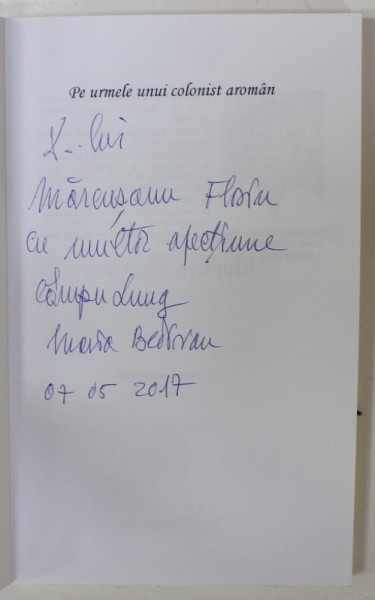 Pe urmele unui colonist aromân
D-lui
Florin
cu multă afecțiune
Câmpulung
Maria
07 05 2017